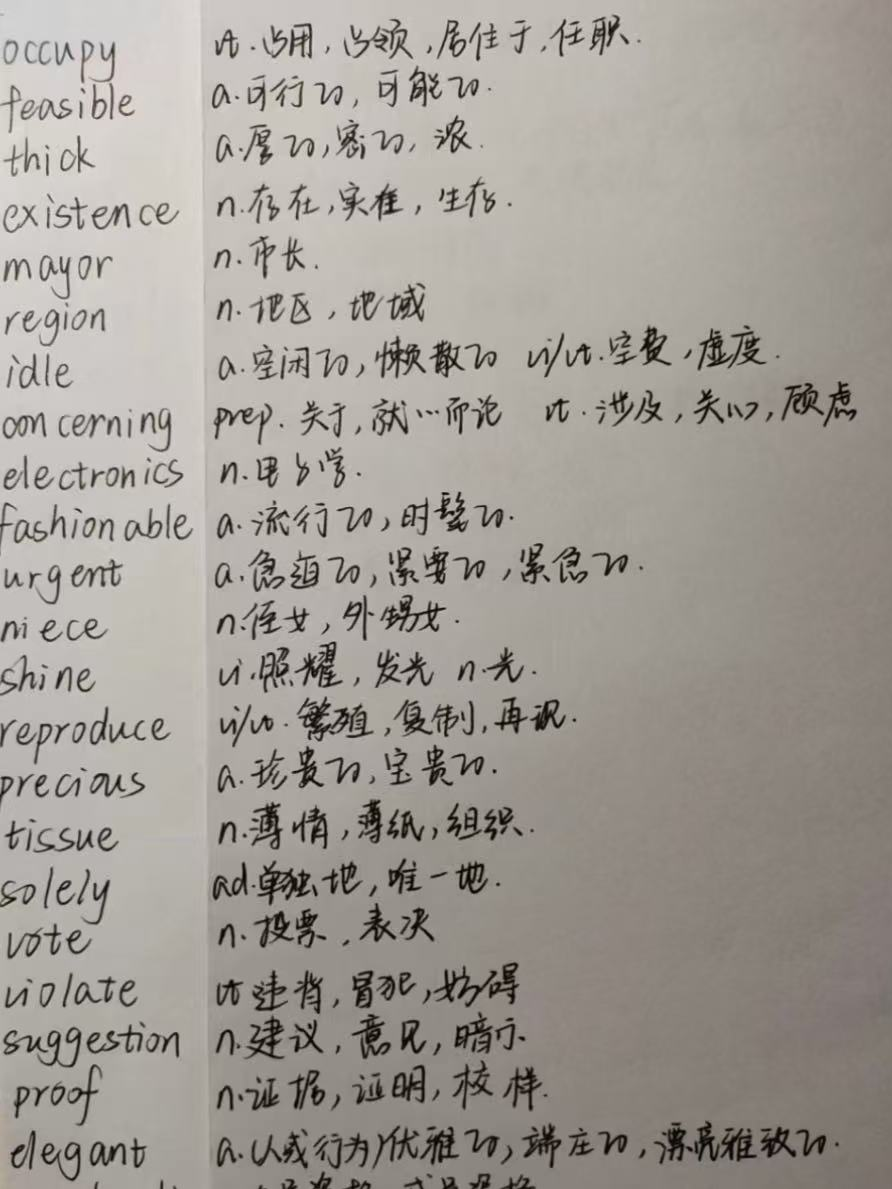 occupy vt.占用,占领,居住于,任职.
feasible a.可行的,可能的.
thick a.厚的,密的,浓.
existence n.存在,实在,生存.
mayor n.市长.
region n.地区,地域
idle a.空闲的,懒散的 vi/vt.空费,虚度.
concerning prep.关于,就…而论 vt.涉及,关心,顾虑
electronics n.电子学.
fashionable a.流行的,时髦的.
urgent a.急迫的,紧要的,紧急的.
niece n.侄女,外甥女.
shine vi.照耀,发光 n.光.
reproduce vi/vt.繁殖,复制,再现.
precious a.珍贵的,宝贵的.
tissue n.薄情,薄纸,组织.
solely ad.单独地,唯一地.
vote n.投票,表决
violate vt违背,冒犯,妨碍
suggestion n.建议,意见,暗示
proof n.证据,证明,校样.
elegant a.(人或行为)优雅的,端庄的,漂亮雅致的.